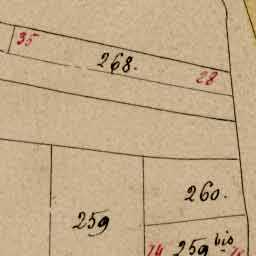 35
268.
28
260.
259
259 bis
74